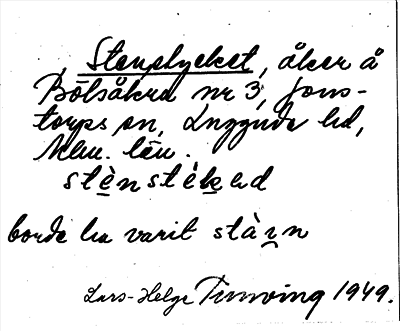 Stenstycket, åker å
Bölsåkra nr 3, Jons-
torps sn, Luggude hd,
Mlm. län.
stènstèkəd
borde ha varit stàɪn
Lars-Helge Tunving 1949.